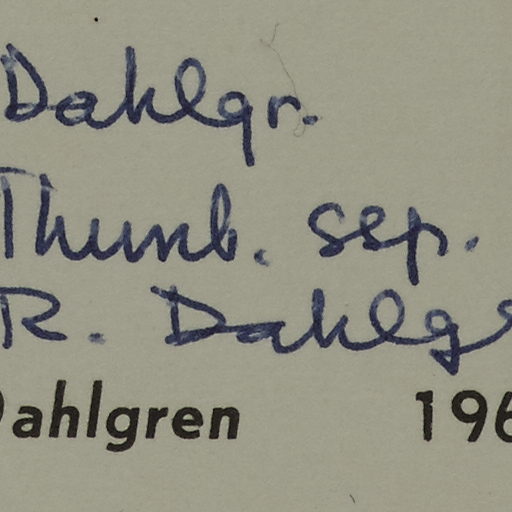 Dahlgr.
Thunb. ssp.
R. Dahlgr
Dahlgren 196